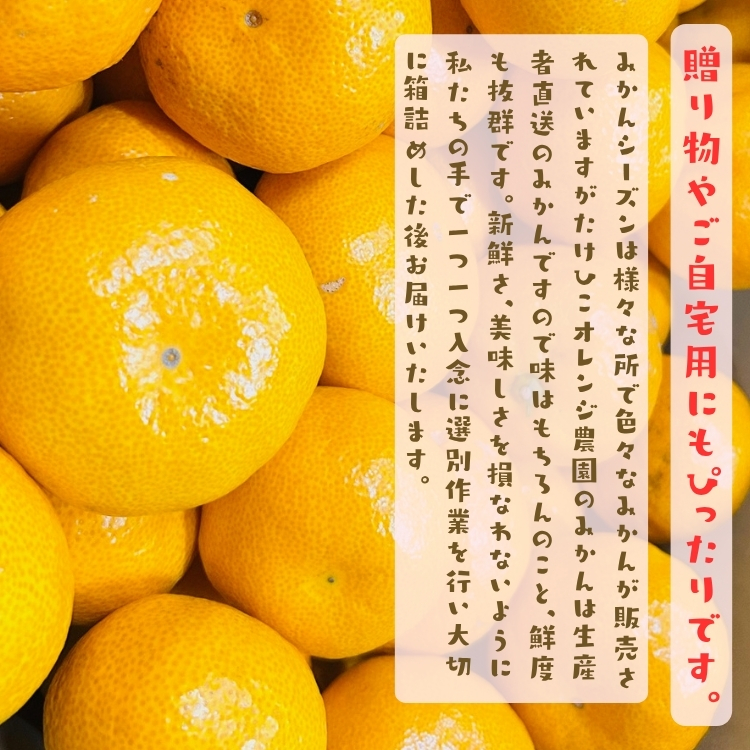 贈り物やご自宅用にもぴったりです。
みかんシーズンは様々な所で色々なみかんが販売さ
れていますがたけひこオレンジ農園のみかんは生産
者直送のみかんですので味はもちろんのこと、鮮度
も抜群です。新鮮さ、美味しさを損なわないように
私たちの手で一つ一つ入念に選別作業を行い大切
に箱詰めした後お届けいたします。